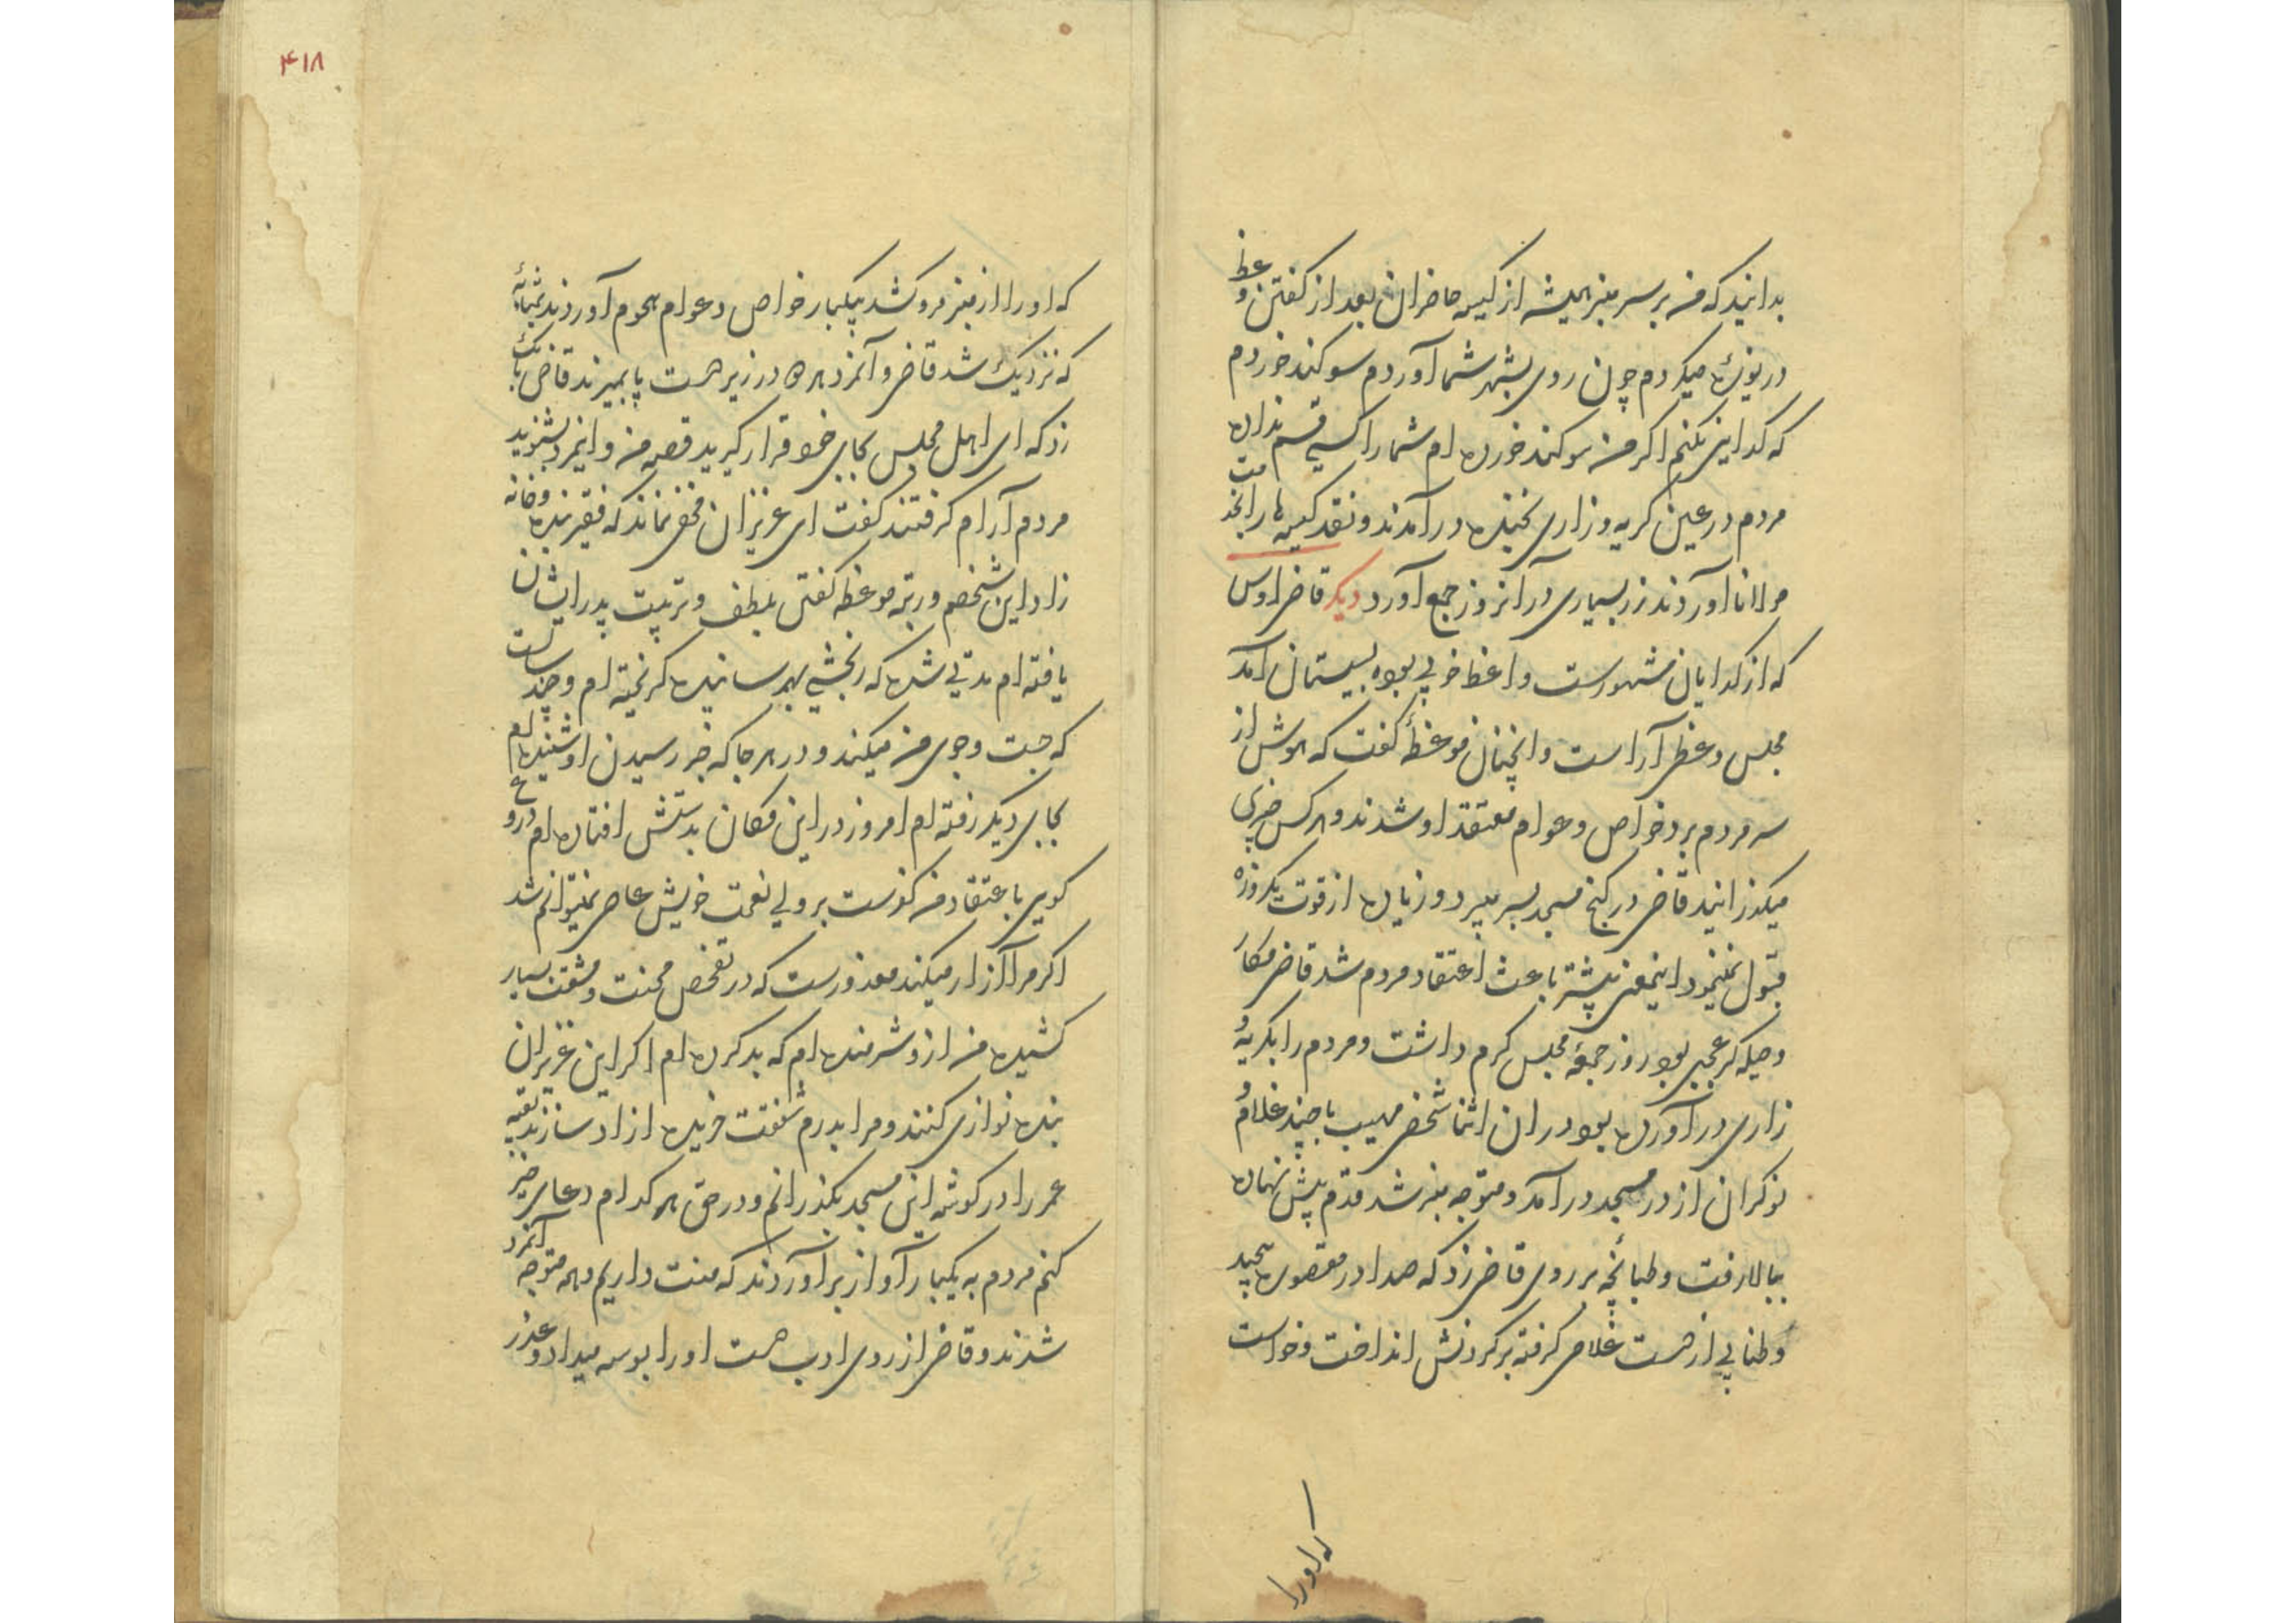 بدانید که من بر سر منبر همیشه از کیسه حاضران بعد از گفتن وعظ
دریوزه میکردم چون روی بشهر شما آوردم سوکند خوردم
که کدایی نکنم اکر من سوکند خورده ام شما را کسی قسم نداده
مردم در عین کریه و زاری بخنده در آمدند و نقد کیسه ها را بخدمت
مولانا آوردند زر بسیاری در آنروز جمع آورد دیکر قاضی اوس
که از کدایان مشهورست واعظ خوبی بوده بسیستان آمد
مجلس وعظی آراست و آنچنان موعظه گفت که هوش از
سر مردم برد خواص و عوام معتقد او شدند و هر کس چیزی
میکذرانید قاضی در کنج مسجد بسر میبرد و زیاده از قوت یکروزه
قبول نمینمود اینمعنی بیشتر باعث اعتقاد مردم شد قاضی مکار
و حیله کر عجبی بود روز جمعه مجلس کرم داشت و مردم را بکریه و
زاری در آورده بود در ان اثنا شخص مهیب با چند غلام و
نوکران از در مسجد در آمد و متوجه منبر شد قدم پیش نهاده
ببالا رفت و طبانچه بر روی قاضی زد که صدا در مقصوره پیچید
و طنابی از دست غلامی کرفته بر کردنش انداخت و خواست
که اورا
۴۱۸
که او را از منبر فرو کشد بیکبار خواص و عوام هجوم آوردند بمثابه
که نزدیک شد قاضی و آنمرد هر دو در زیر دست پا بمیرند قاضی بانک
زد که ای اهل مجلس بجای خود قرار کیرید قصه من و اینمرد بشنوید
مردم آرام کرفتند کفت ای عزیزان مخفی نماند که فقیر بنده و خانه
زاد این شخصم و رتبه موعظه کفتن بلطف و تربیت پدر ایشان
یافته ام مدتی شده که رنجشی بهم رسانیده کریخته ام و چند سالست
که جست و جوی من میکند و در هر جا که خبر رسیدن او شنیده ام
بجای دیکر رفته ام امروز در این مکان بدستش افتاده ام دروغ
کویی باعتقاد من کفرست بر ولی نعمت خویش عاصی نمیتوانم شد
اکر مرا آزار میکند معذورست که در تفحص محنت و مشقت بسیار
کشیده من ازو شرمنده ام که بد کرده ام اکر این عزیزان
بنده نوازی کنند و مرا بدرم شفقت خریده ازاد سازند بقیه
عمر را در کوشه این مسجد بکذرانم و در حق هر کدام دعای خیر
کنم مردم به یکبار آواز بر آوردند که منت داریم و همه متوجه آنمرد
شدند و قاضی از روی ادب دست او را بوسه میداد و عذر